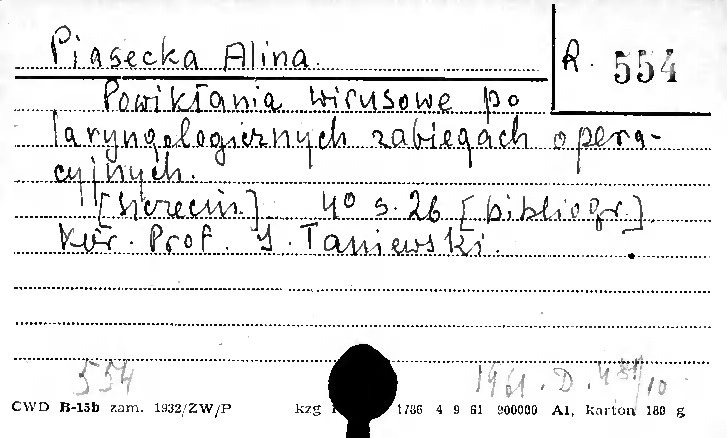 Piasecka Alina.
R. 554
Powikłania wirusowe po
laryngologicznych zabiegach opera-
cyjnych.
[Szczecin.] 4° s. 26 [bibliogr.].
Kier. Prof. J. Taniewski.
554
1961. D. 481/10
CWD B-15b zam. 1932/ZW/P kzg 1786 4 9 61 900000 A1, karton 180 g